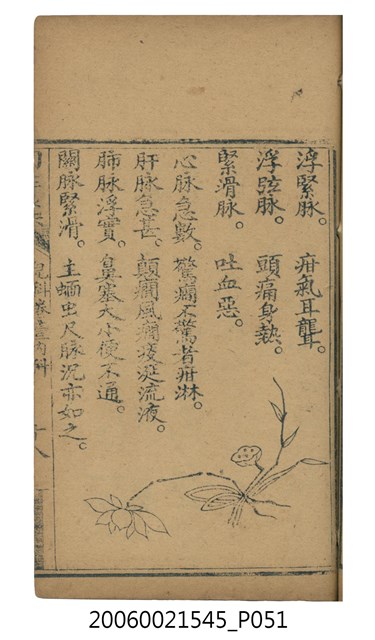 浮緊脉。 疳氣耳聾。
浮弦脉。 頭痛身熱。
緊滑脉。 吐血惡。
心脉急數。 驚癎不驚者疳淋。
肝脉急甚。 顛癎風癎痰涎流液。
肺脉浮實。 鼻塞大小便不通。
關脉緊滑。 主蛔虫尺脉沉亦如之。
兒科卷
内科
20060021545_P051